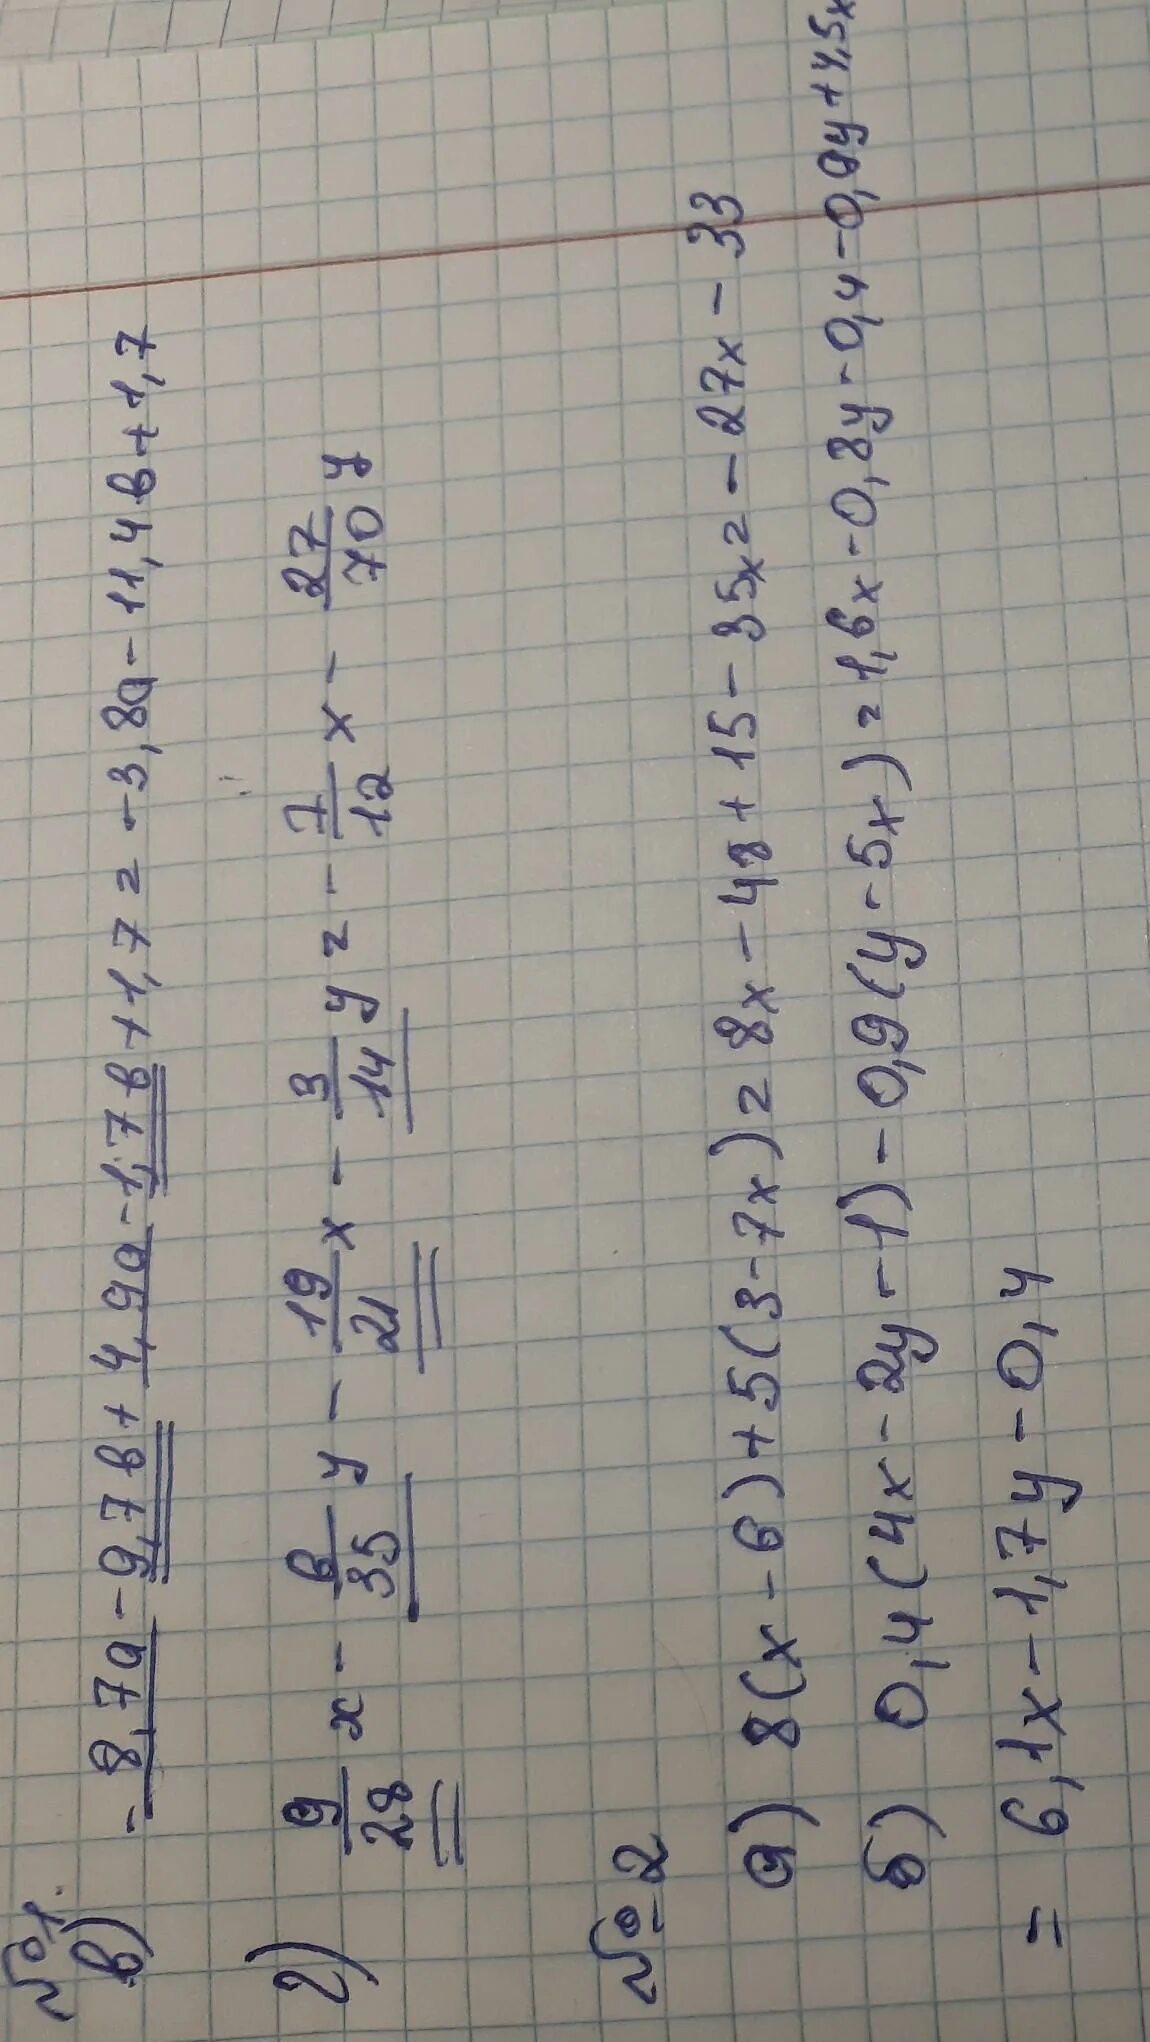 №1.
в) -8,7a - 9,7в + 4,9a - 1,7в + 1,7 = -3,8a - 11,4в + 1,7
г) 9/28 x - 6/35 y - 19/21 x - 3/14 y = - 7/12 x - 27/70 y
№2
а) 8(x - 6) + 5(3 - 7x) = 8x - 48 + 15 - 35x = -27x - 33
б) 0,4(4x - 2y - 1) - 0,9(y - 5x) = 1,6x - 0,8y - 0,4 - 0,9y + 4,5x
= 6,1x - 1,7y - 0,4